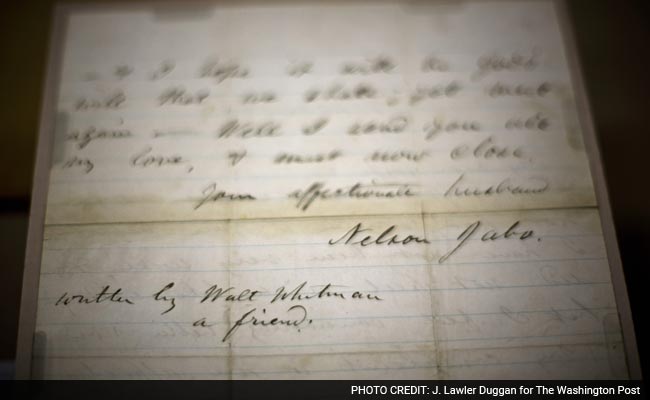 & I hope it will be God's
will that we shall yet meet
again — Well I send you all
my love, & must now close.
Your affectionate husband
Nelson Jabo.
written by Walt Whitman
a friend.
PHOTO CREDIT: J. Lawler Duggan for The Washington Post